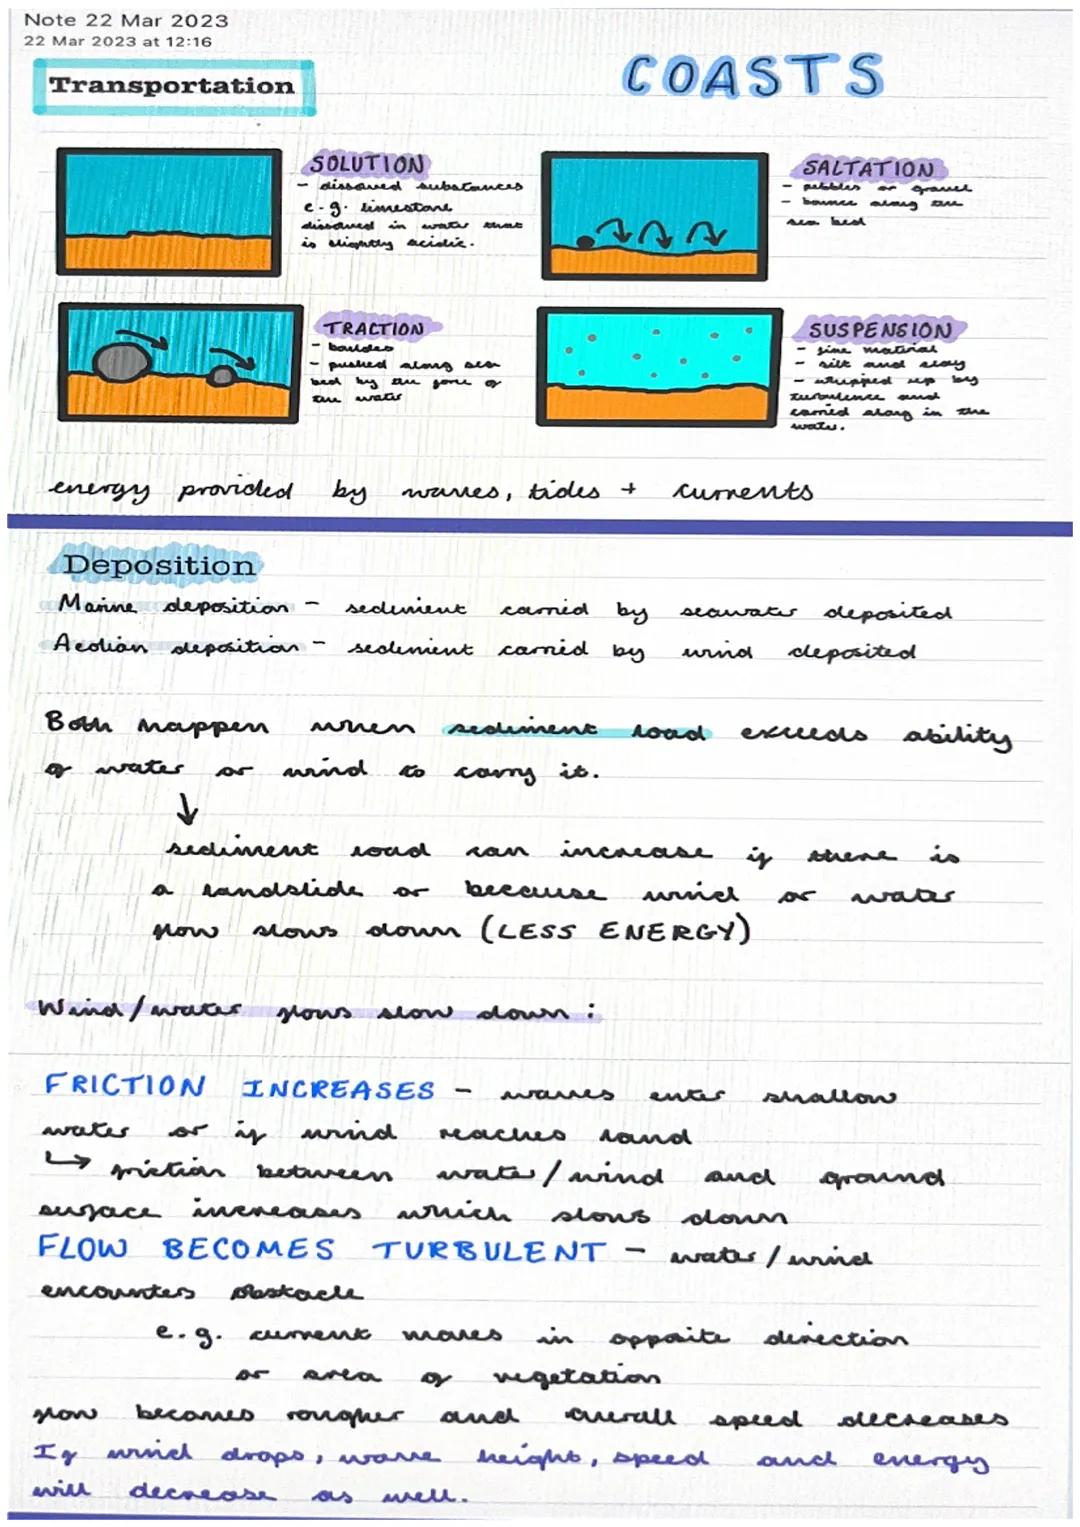 Note 22 Mar 2023
22 Mar 2023 at 12:16
Transportation
COASTS
SOLUTION
- dissolved substances
e.g. limestone
dissolved in water that
is slightly acidic.
SALTATION
- pebbles or gravel
- bounce along the
sea bed
TRACTION
- boulders
- pushed along sea
bed by the force of
the water
SUSPENSION
- fine material
- silt and clay
- whipped up by
turbulence and
carried along in the
water.
energy provided by waves, tides + currents
Deposition
Marine deposition - sediment carried by seawater deposited
Aeolian deposition - sediment carried by wind deposited
Both happen when sediment load exceeds ability
of water or wind to carry it.
↓
sediment load can increase if there is
a landslide or because wind or water
flow slows down (LESS ENERGY)
Wind/water flows slow down :
FRICTION INCREASES - waves enter shallow
water or if wind reaches land
↳ friction between water/wind and ground
surface increases which slows down
FLOW BECOMES TURBULENT - water/wind
encounters obstacle
e.g. current moves in opposite direction
or area of vegetation
flow becomes rougher and overall speed decreases
If wind drops, wave height, speed and energy
will decrease as well.